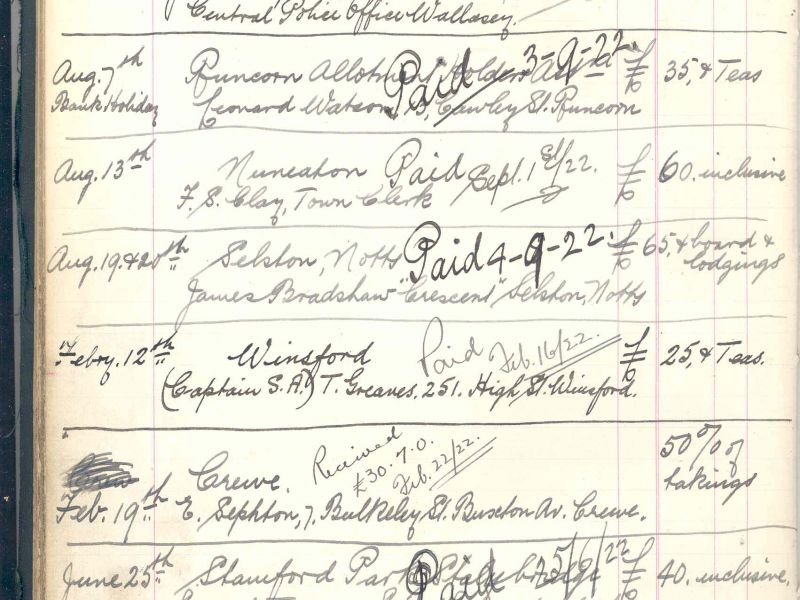 Central Police Office Wallasey.
Aug. 7th Runcorn Allotment Holders Paid 3-9-22. £ 35, & Teas
Bank Holiday Leonard Watson, Cawley St. Runcorn
Aug. 13th Nuneaton Paid Sept. 1st/22. £ 60. inclusive
F. S. Clay, Town Clerk
Aug. 19. & 20th Selston, Notts Paid 4-9-22. £ 65, & board &
lodgings
James Bradshaw "Crescent" Selston, Notts
Febry. 12th Winsford Paid Feb. 16/22. £ 25, & Teas.
(Captain S.A.) T. Greaves. 251. High St. Winsford.
Crewe. Received £30.7.0. Feb. 22/22. 50% of
takings
Feb. 19th E. Sephton, 7. Bulkeley St. Buxton Av. Crewe.
June 25th Stamford Park Stalybridge Paid £ 40. inclusive.